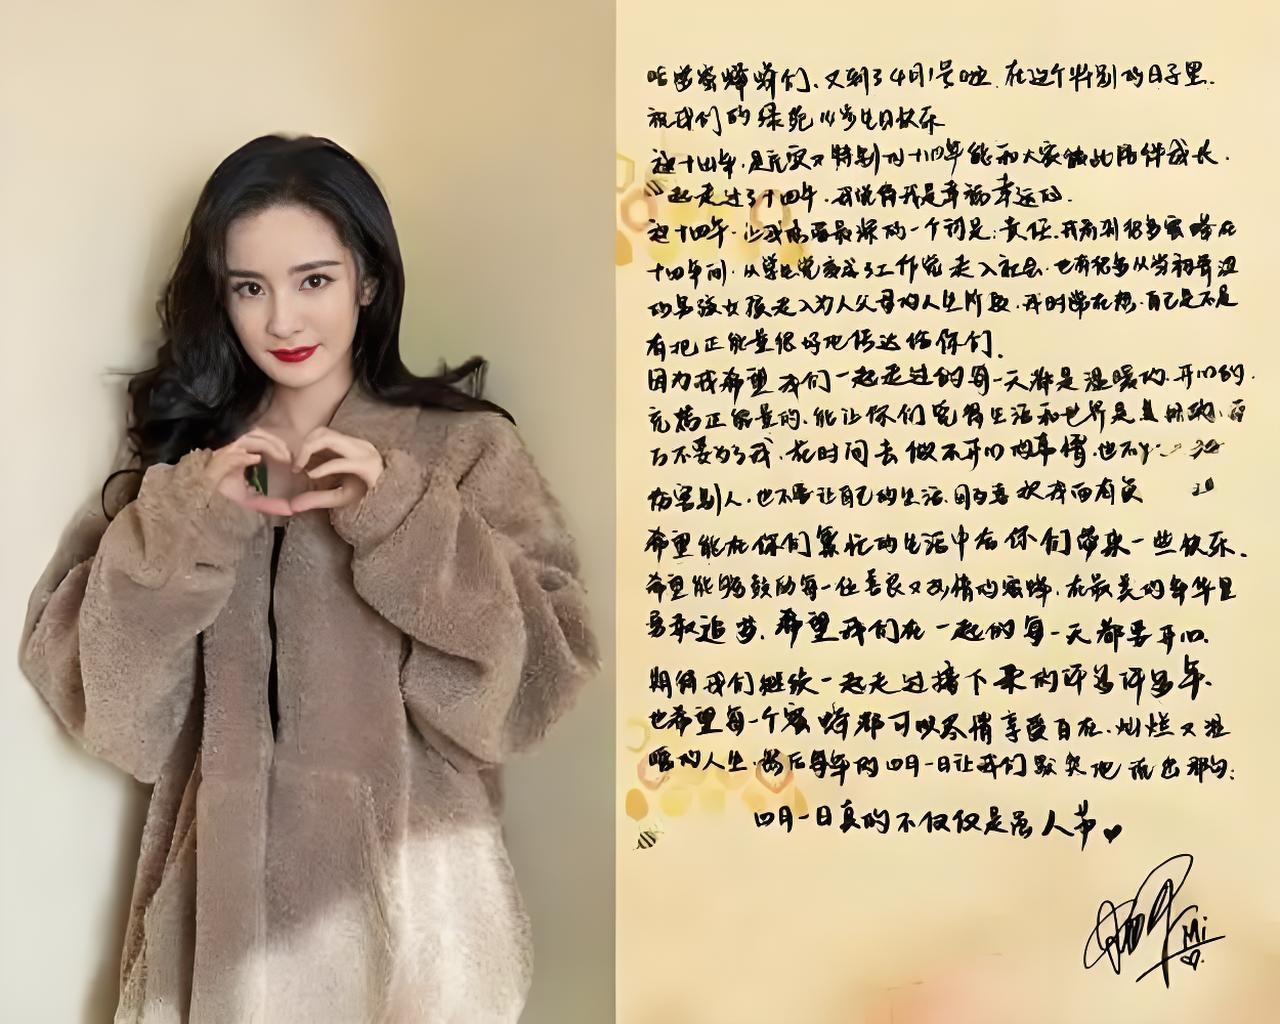 哈喽蜜蜂蜂们、又到了4月1号啦.在这个特别的日子里.
祝我们的绿苑14岁生日快乐
这十四年.是充实又特别的十四年能和大家彼此陪伴成长.
一起走过了十四年.我觉得我是幸福幸运的.
这十四年.让我感受最深的一个词是:责任.我看到很多蜜蜂在
十四年间.从学生党变成了工作党走入社会.也有很多从当初青涩
的男孩女孩走入为人父母的人生阶段.我时常在想.自己是不是
有把正能量很好地传达给你们.
因为我希望我们一起走过的每一天都是温暖的.开心的.
充满正能量的.能让你们觉得生活和世界是美好的.而
不要为了我.花时间去做不开心的事情.也不
伤害别人.也不要让自己的生活.因为喜欢我而有负
希望能在你们繁忙的生活中给你们带来一些快乐.
希望能够鼓励每一位善良又热情的蜜蜂.在最美的年华里
勇敢追梦.希望我们在一起的每一天都要开心.
期待我们继续一起走过接下来的许多许多年.
也希望每一个蜜蜂都可以尽情享受自在.灿烂又温
暖的人生.然后每年的四月一日让我们默契地说出那句:
四月一日真的不仅仅是愚人节♥
杨幂 Mi ♡